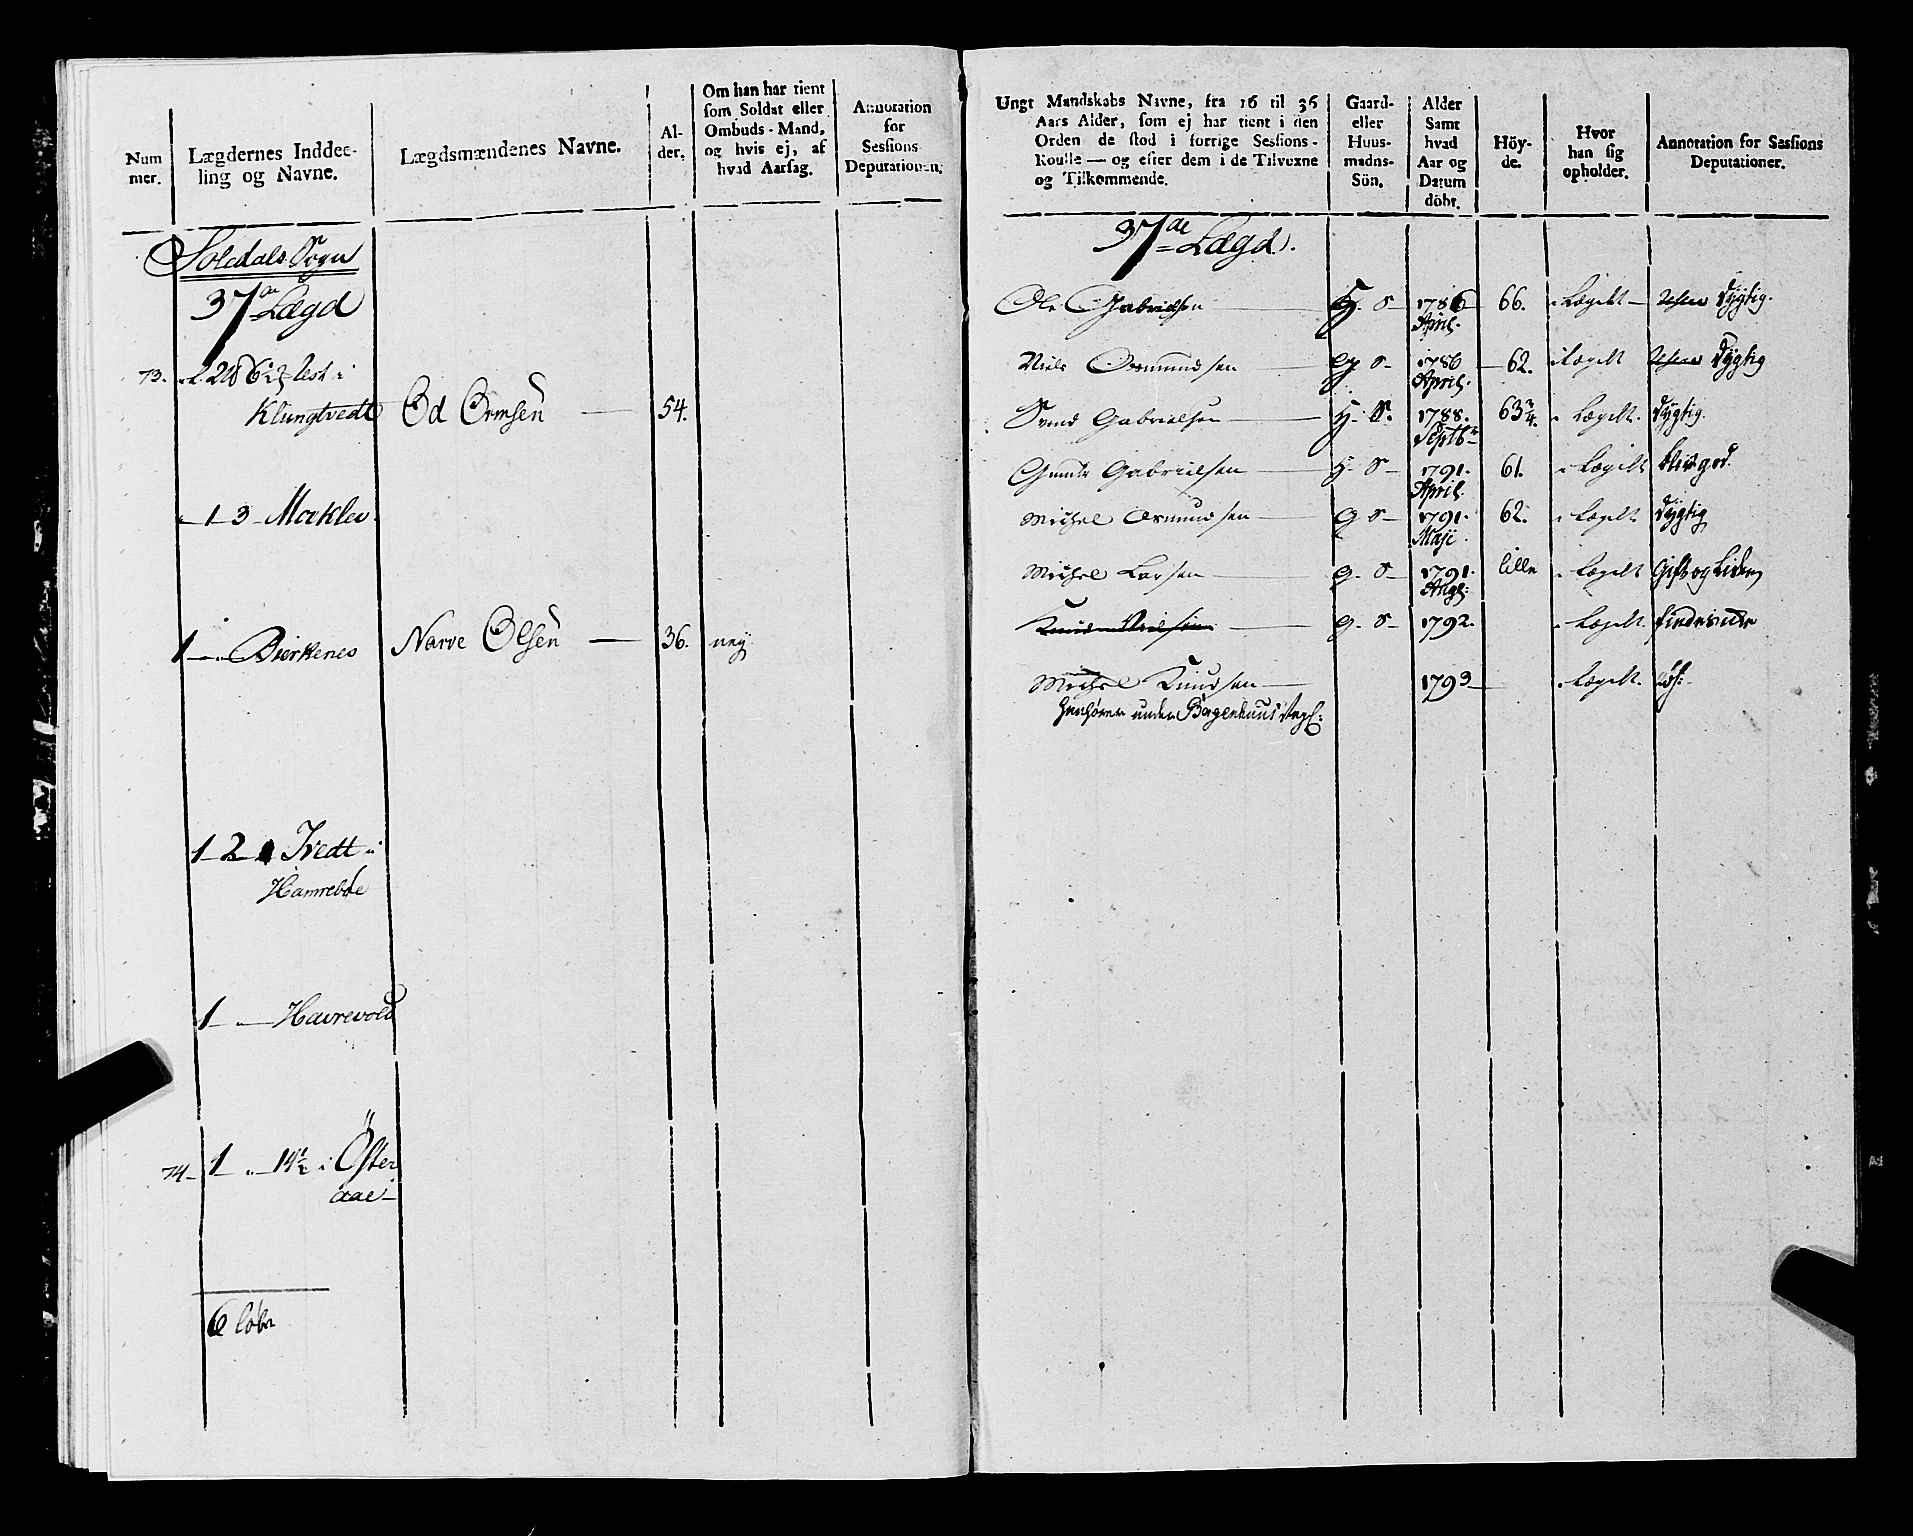 Num
mer.
Lægdernes Inddee-
ling og Navne.
Lægdsmændenes Navne.
Al-
der.
Om han har tient
som Soldat eller
Ombuds-Mand,
og hvis ej, af
hvad Aarsag.
Annotation
for
Sessions
Deputationen.
Soledals Sogn
37de Lægd
73.
Klungtvedt
Od Ormsen 54.
1 3 Moeklev
1 Bierkenes Narve Olsen 36. ney
1 2 Tvedt
Hamreboe
1 Havrevold
74 1 14½ i Öster
aae
6 løbr
Ungt Mandskabs Navne, fra 16 til 36
Aars Alder, som ej har tient i den
Orden de stod i forrige Sessions-
Roulle — og efter dem i de Tilvexne
og Tilkommende.
Gaard-
eller
Huus-
mands-
Sön.
Alder
Samt
hvad
Aar og
Datum
döbt.
Höy-
de.
Hvor
han sig
opholder.
Annotation for Sessions
Deputationer.
37de Lægd.
Ole Gabrielsen H. S 1786 66. i Lægdt Dygtig.
April.
Niels Osmundsen G S 1786 62. i Lægdt Dygtig
April.
Svend Gabrielsen H. S. 1788. 63¾. i Lægdt. Dygtig.
Septbr
Gunder Gabrielsen H. S 1791. 61. i Lægdt
April.
Michel Osmundsen G S 1791. 62. i Lægdt Dygtig
Maji.
Michel Larsen G. S 1791. lille i Lægdt Gift og Liden
Aug:
Knud Nielsen G. S 1792. i Lægdt
Michel Knudsen 1793 i Lægdt. ds:
henhører under Bergenhuus Regt: